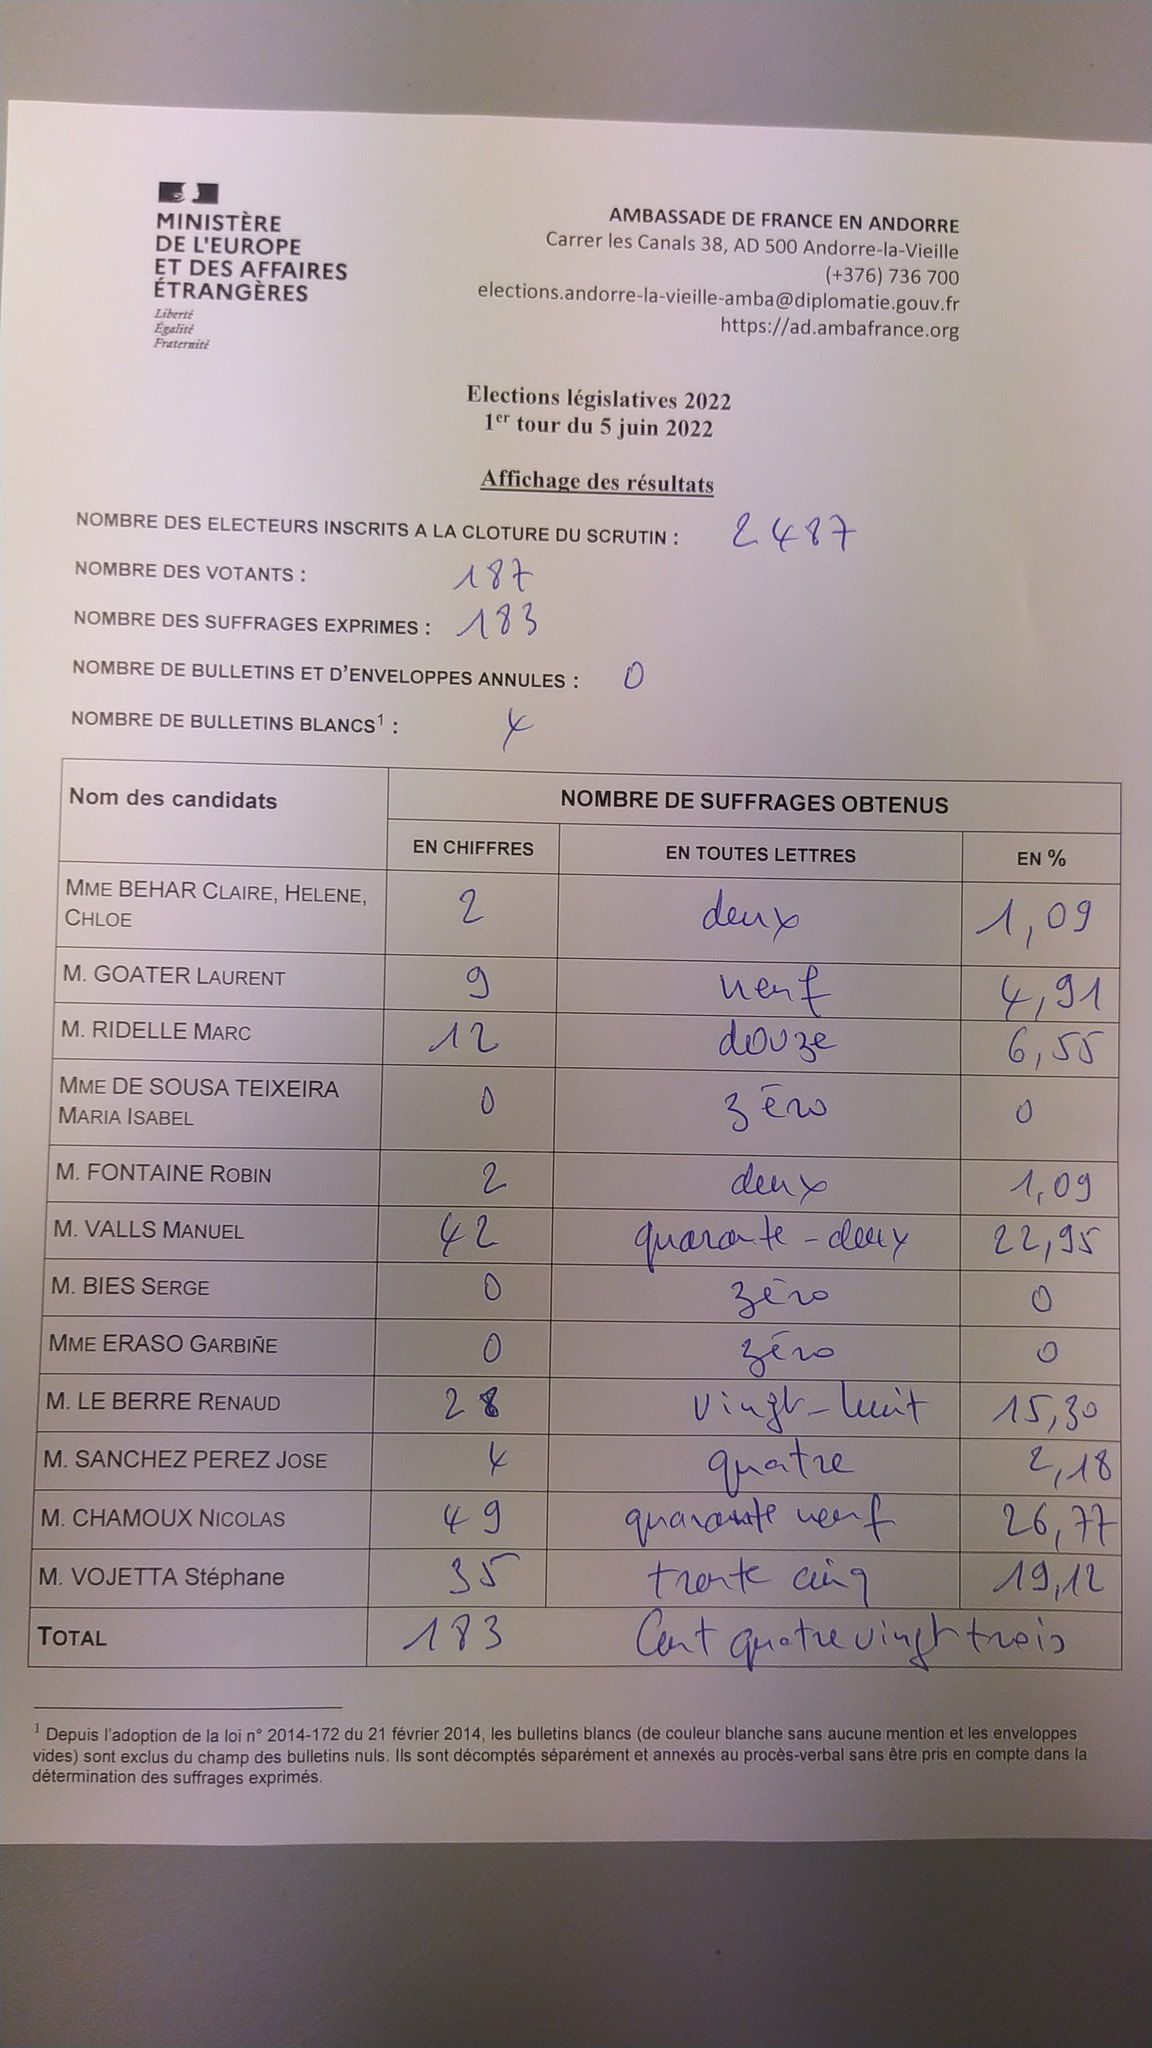 MINISTÈRE
DE L'EUROPE
ET DES AFFAIRES
ÉTRANGÈRES
Liberté
Égalité
Fraternité
AMBASSADE DE FRANCE EN ANDORRE
Carrer les Canals 38, AD 500 Andorre-la-Vieille
(+376) 736 700
elections.andorre-la-vieille-amba@diplomatie.gouv.fr
https://ad.ambafrance.org
Elections législatives 2022
1er tour du 5 juin 2022
Affichage des résultats
NOMBRE DES ELECTEURS INSCRITS A LA CLOTURE DU SCRUTIN : 2487
NOMBRE DES VOTANTS : 187
NOMBRE DES SUFFRAGES EXPRIMES : 183
NOMBRE DE BULLETINS ET D'ENVELOPPES ANNULES : 0
NOMBRE DE BULLETINS BLANCS1 : 4
Nom des candidats NOMBRE DE SUFFRAGES OBTENUS
EN CHIFFRES EN TOUTES LETTRES EN %
MME BEHAR CLAIRE, HELENE,
CHLOE 2 deux 1,09
M. GOATER LAURENT 9 neuf 4,91
M. RIDELLE MARC 12 douze 6,55
MME DE SOUSA TEIXEIRA
MARIA ISABEL 0 zéro 0
M. FONTAINE ROBIN 2 deux 1,09
M. VALLS MANUEL 42 quarante-deux 22,95
M. BIES SERGE 0 zéro 0
MME ERASO GARBIÑE 0 zéro 0
M. LE BERRE RENAUD 28 vingt-huit 15,30
M. SANCHEZ PEREZ JOSE 4 quatre 2,18
M. CHAMOUX NICOLAS 49 quarante neuf 26,77
M. VOJETTA Stéphane 35 trente cinq 19,12
TOTAL 183 Cent quatre vingt trois
1 Depuis l'adoption de la loi n° 2014-172 du 21 février 2014, les bulletins blancs (de couleur blanche sans aucune mention et les enveloppes
vides) sont exclus du champ des bulletins nuls. Ils sont décomptés séparément et annexés au procès-verbal sans être pris en compte dans la
détermination des suffrages exprimés.